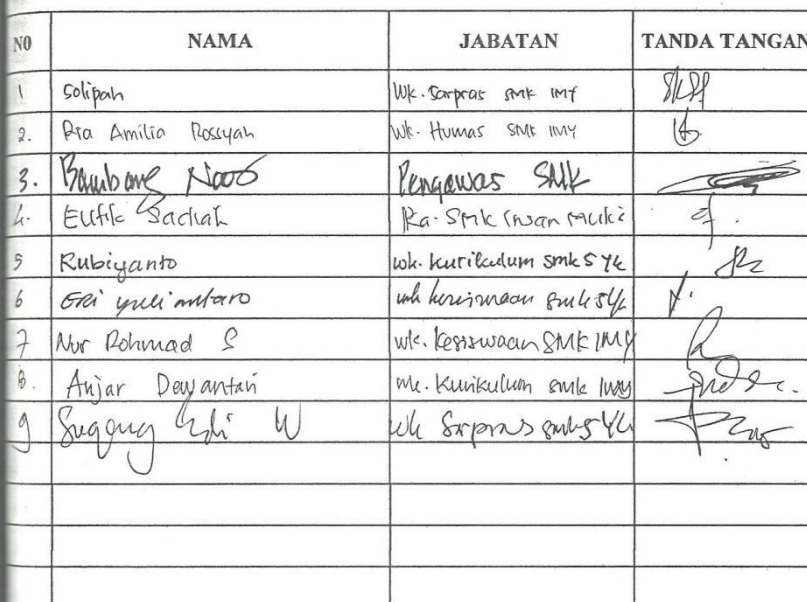 NO NAMA JABATAN TANDA TANGAN
1 Solipah Wk. Sarpras SMK IMY
2. Ria Amilia Rossyah Wk. Humas SMK IMY
3. Bambang Pengawas SMK
4. Ka. SMK
5 Rubiyanto wk. kurikulum smk 5 Yk
6 Eri yuliantoro wk kesiswaan smk 5 Yk
7 Nur Rohmad S wk. Kesiswaan SMK IMY
8. Anjar Dewantari wk. Kurikulum smk IMY
9 Sugeng Edi W wk Sarpras smk 5 Yk